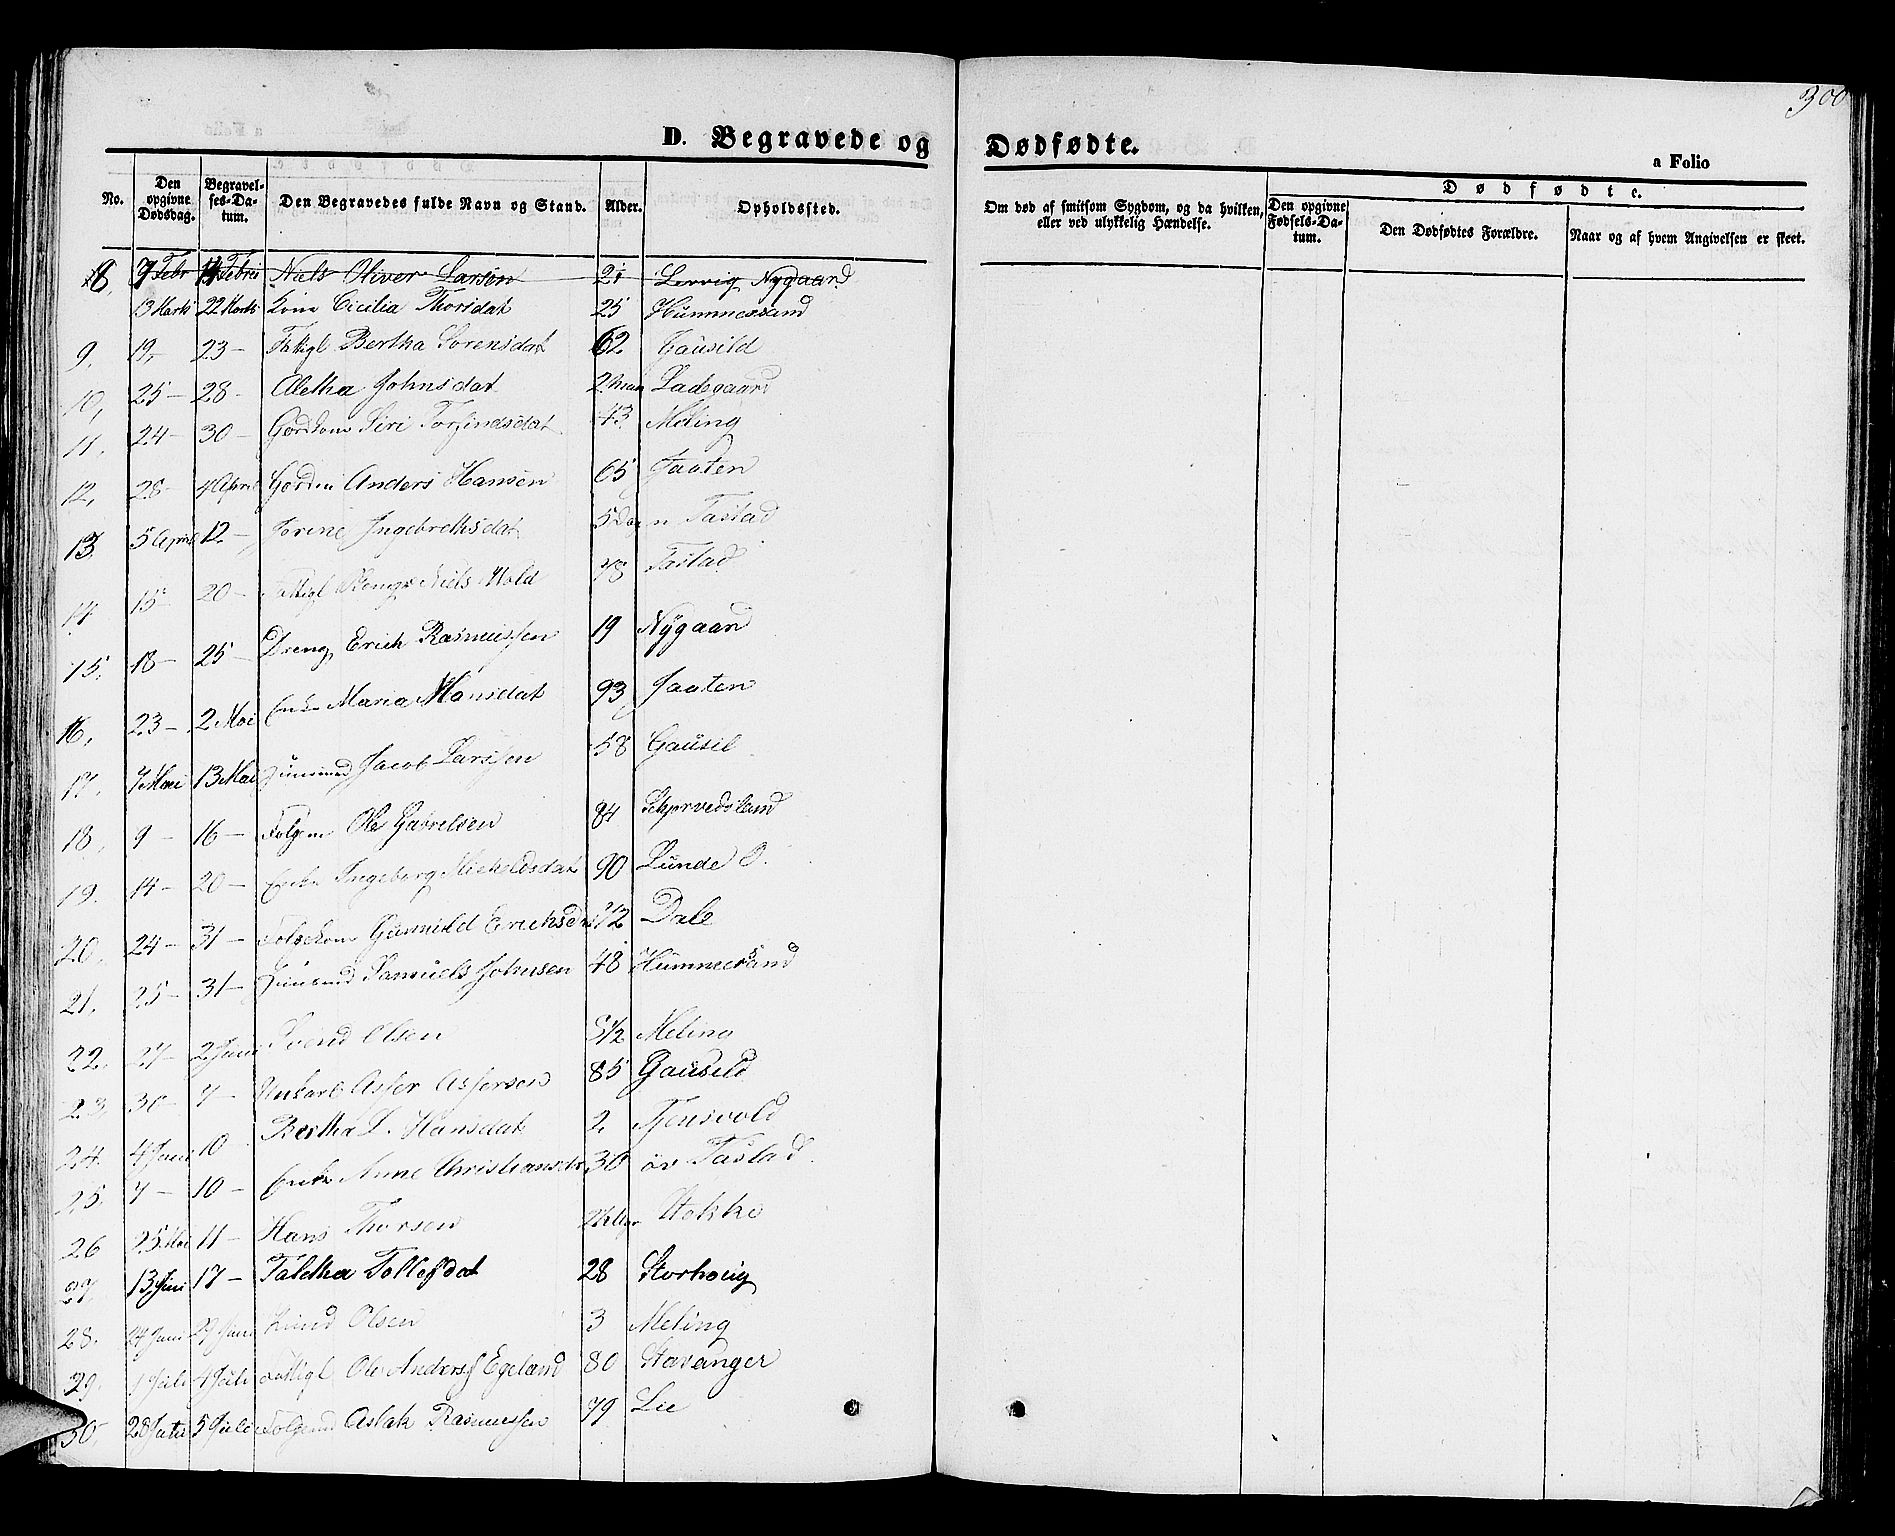 300
D. Begravede og Dødfødte.
a Folio
No. Den opgivne Dødsdag. Begravelses-Datum. Den Begravedes fulde Navn og Stand. Alder. Opholdssted. Om død af smitsom Sygdom, og da hvilken, eller ved ulykkelig Hændelse. Den opgivne Fødsels-Datum. Dødfødte. Den Dødfødtes Forældre. Naar og af hvem Angivelsen er skeet.
8, 7 Febr 14 Febru Niels Oliver Larsen 21 Lervig Nygaard
13 Marts 22 Marts Kone Cicilia Thorsdat 25 Hummersand
9. 19, 23 – Fattigl Bertha Sorensdat 62 Gausild
10, 25 – 28 – Aletha Johnsdat 2 Maan Ladegaard
11. 24 – 30 – Gordkone Siri Torfindsdat 43 Meling
12, 28 – 4 April Gordm Anders Hansen 65 Jaaten
13 5 April 12 – Jorine Ingebrethsdat 5 Dagen Tastad
14 15 – 20 – Fattigl Niels Hold 78 Tastad
15, 18 – 25 – Dreng Erich Rasmussen 19 Nÿgaard
16, 23 – 2 Mai Enke Maria Monsdat 93 Jaaten
17, 7 Mai 13 Mai Huusmd Jacob Larssen 58 Gausil
18, 9 – 16 – Folgem Ole Gabrelsen 84
19. 14 – 20 – Enke Ingeborg Micheldsdat 90 Lunde O.
20. 24 – 31 – Folgekone Gunnild Erichsdat 72 Dale
21, 25 – 31 – Huusmd Samuels Johnsen 48 Hummersand
22. 27 – 2 Juni Svend Olsen 5 1/2 Meling
23, 30 – 7 – Unkarl Asser Assersen 85 Gausild
24. 4 Juni 10 Bertha S. Hansdat 2 Tjensvold
25. 7 – 10 – Enke Anne Christiansdr 30 öv Tastad
26 25 Mai 11 – Hans Thorsen Stokke
27, 13 Juni 17 – Taletha Tollefsdat 28 Storhoug
28. 24 Juni 29 Juni Knud Olsen 3 Meling
29. 1 Juli 4 Juli Fattigl Ole Anders. Egeland 80 Stavanger
30, 28 Juni 5 Juli Folgemd Aslak Rasmussen 79 Lie